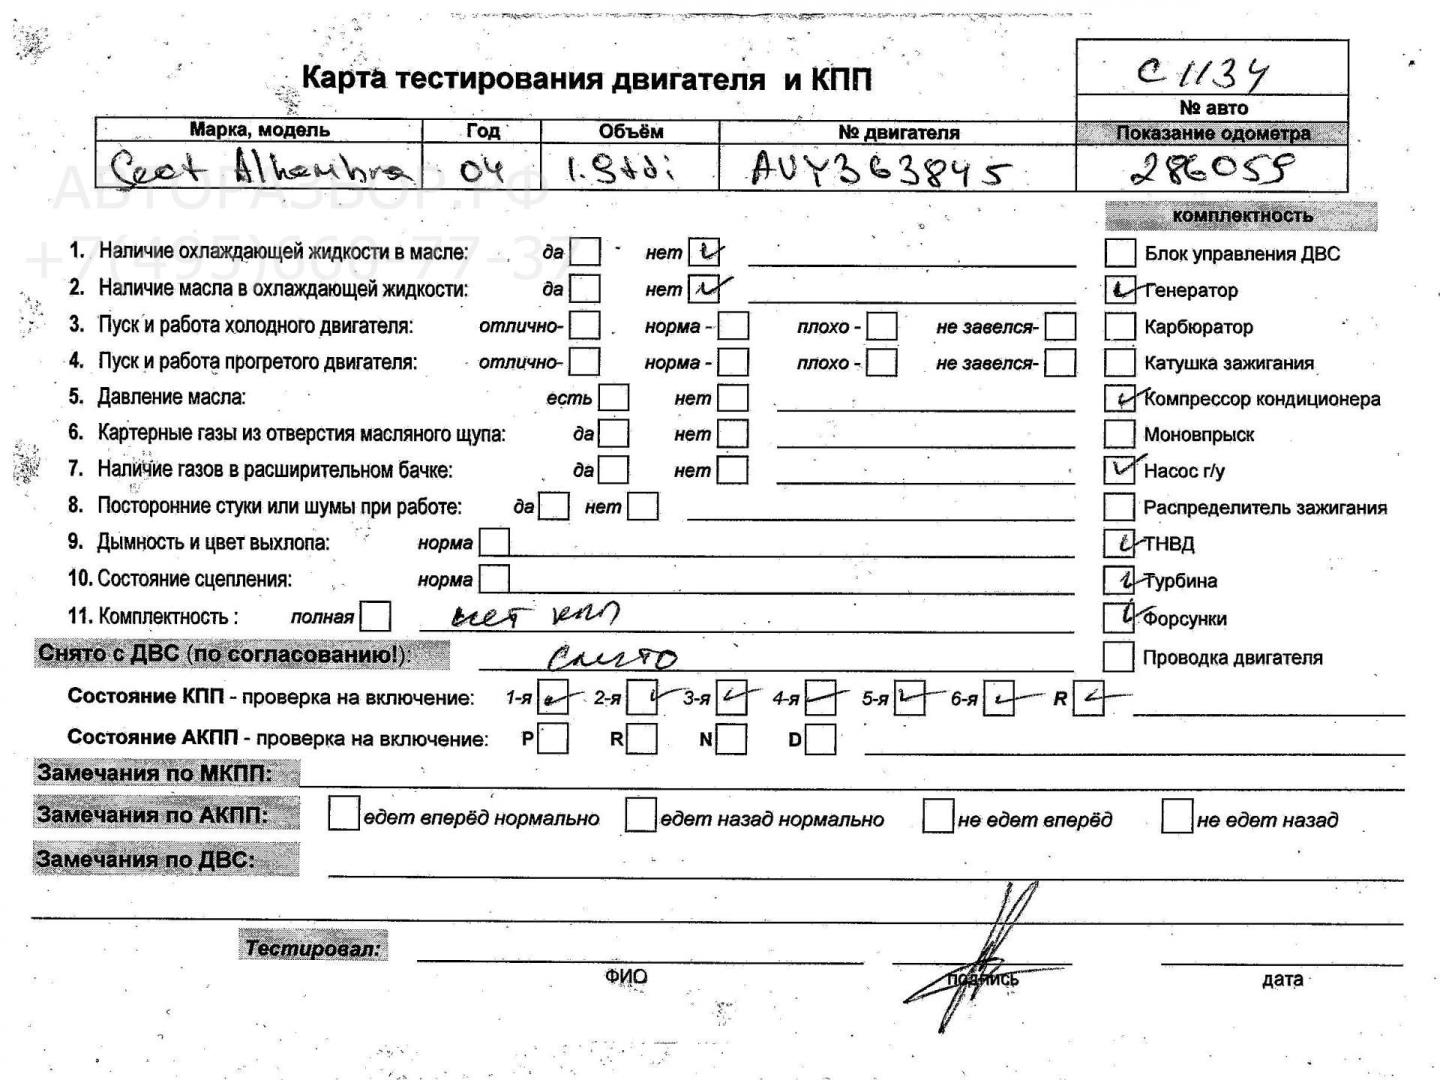 Карта тестирования двигателя и КПП
С1134
№ авто
Марка, модель Год Объём № двигателя Показание одометра
Seat Alhambra 04 1.9tdi AUY363845 286059
АВТОРАЗБОР.РФ
+7(495)668-77-37
комплектность
1. Наличие охлаждающей жидкости в масле: да нет Блок управления ДВС
2. Наличие масла в охлаждающей жидкости: да нет Генератор
3. Пуск и работа холодного двигателя: отлично- норма - плохо - не завелся- Карбюратор
4. Пуск и работа прогретого двигателя: отлично- норма - плохо - не завелся- Катушка зажигания
5. Давление масла: есть нет Компрессор кондиционера
6. Картерные газы из отверстия масляного щупа: да нет Моновпрыск
7. Наличие газов в расширительном бачке: да нет Насос г/у
8. Посторонние стуки или шумы при работе: да нет Распределитель зажигания
9. Дымность и цвет выхлопа: норма ТНВД
10. Состояние сцепления: норма Турбина
11. Комплектность : полная нет кпп Форсунки
Снято с ДВС (по согласованию!): снято Проводка двигателя
Состояние КПП - проверка на включение: 1-я 2-я 3-я 4-я 5-я 6-я R
Состояние АКПП - проверка на включение: P R N D
Замечания по МКПП:
Замечания по АКПП: едет вперёд нормально едет назад нормально не едет вперёд не едет назад
Замечания по ДВС:
Тестировал:
ФИО подпись дата